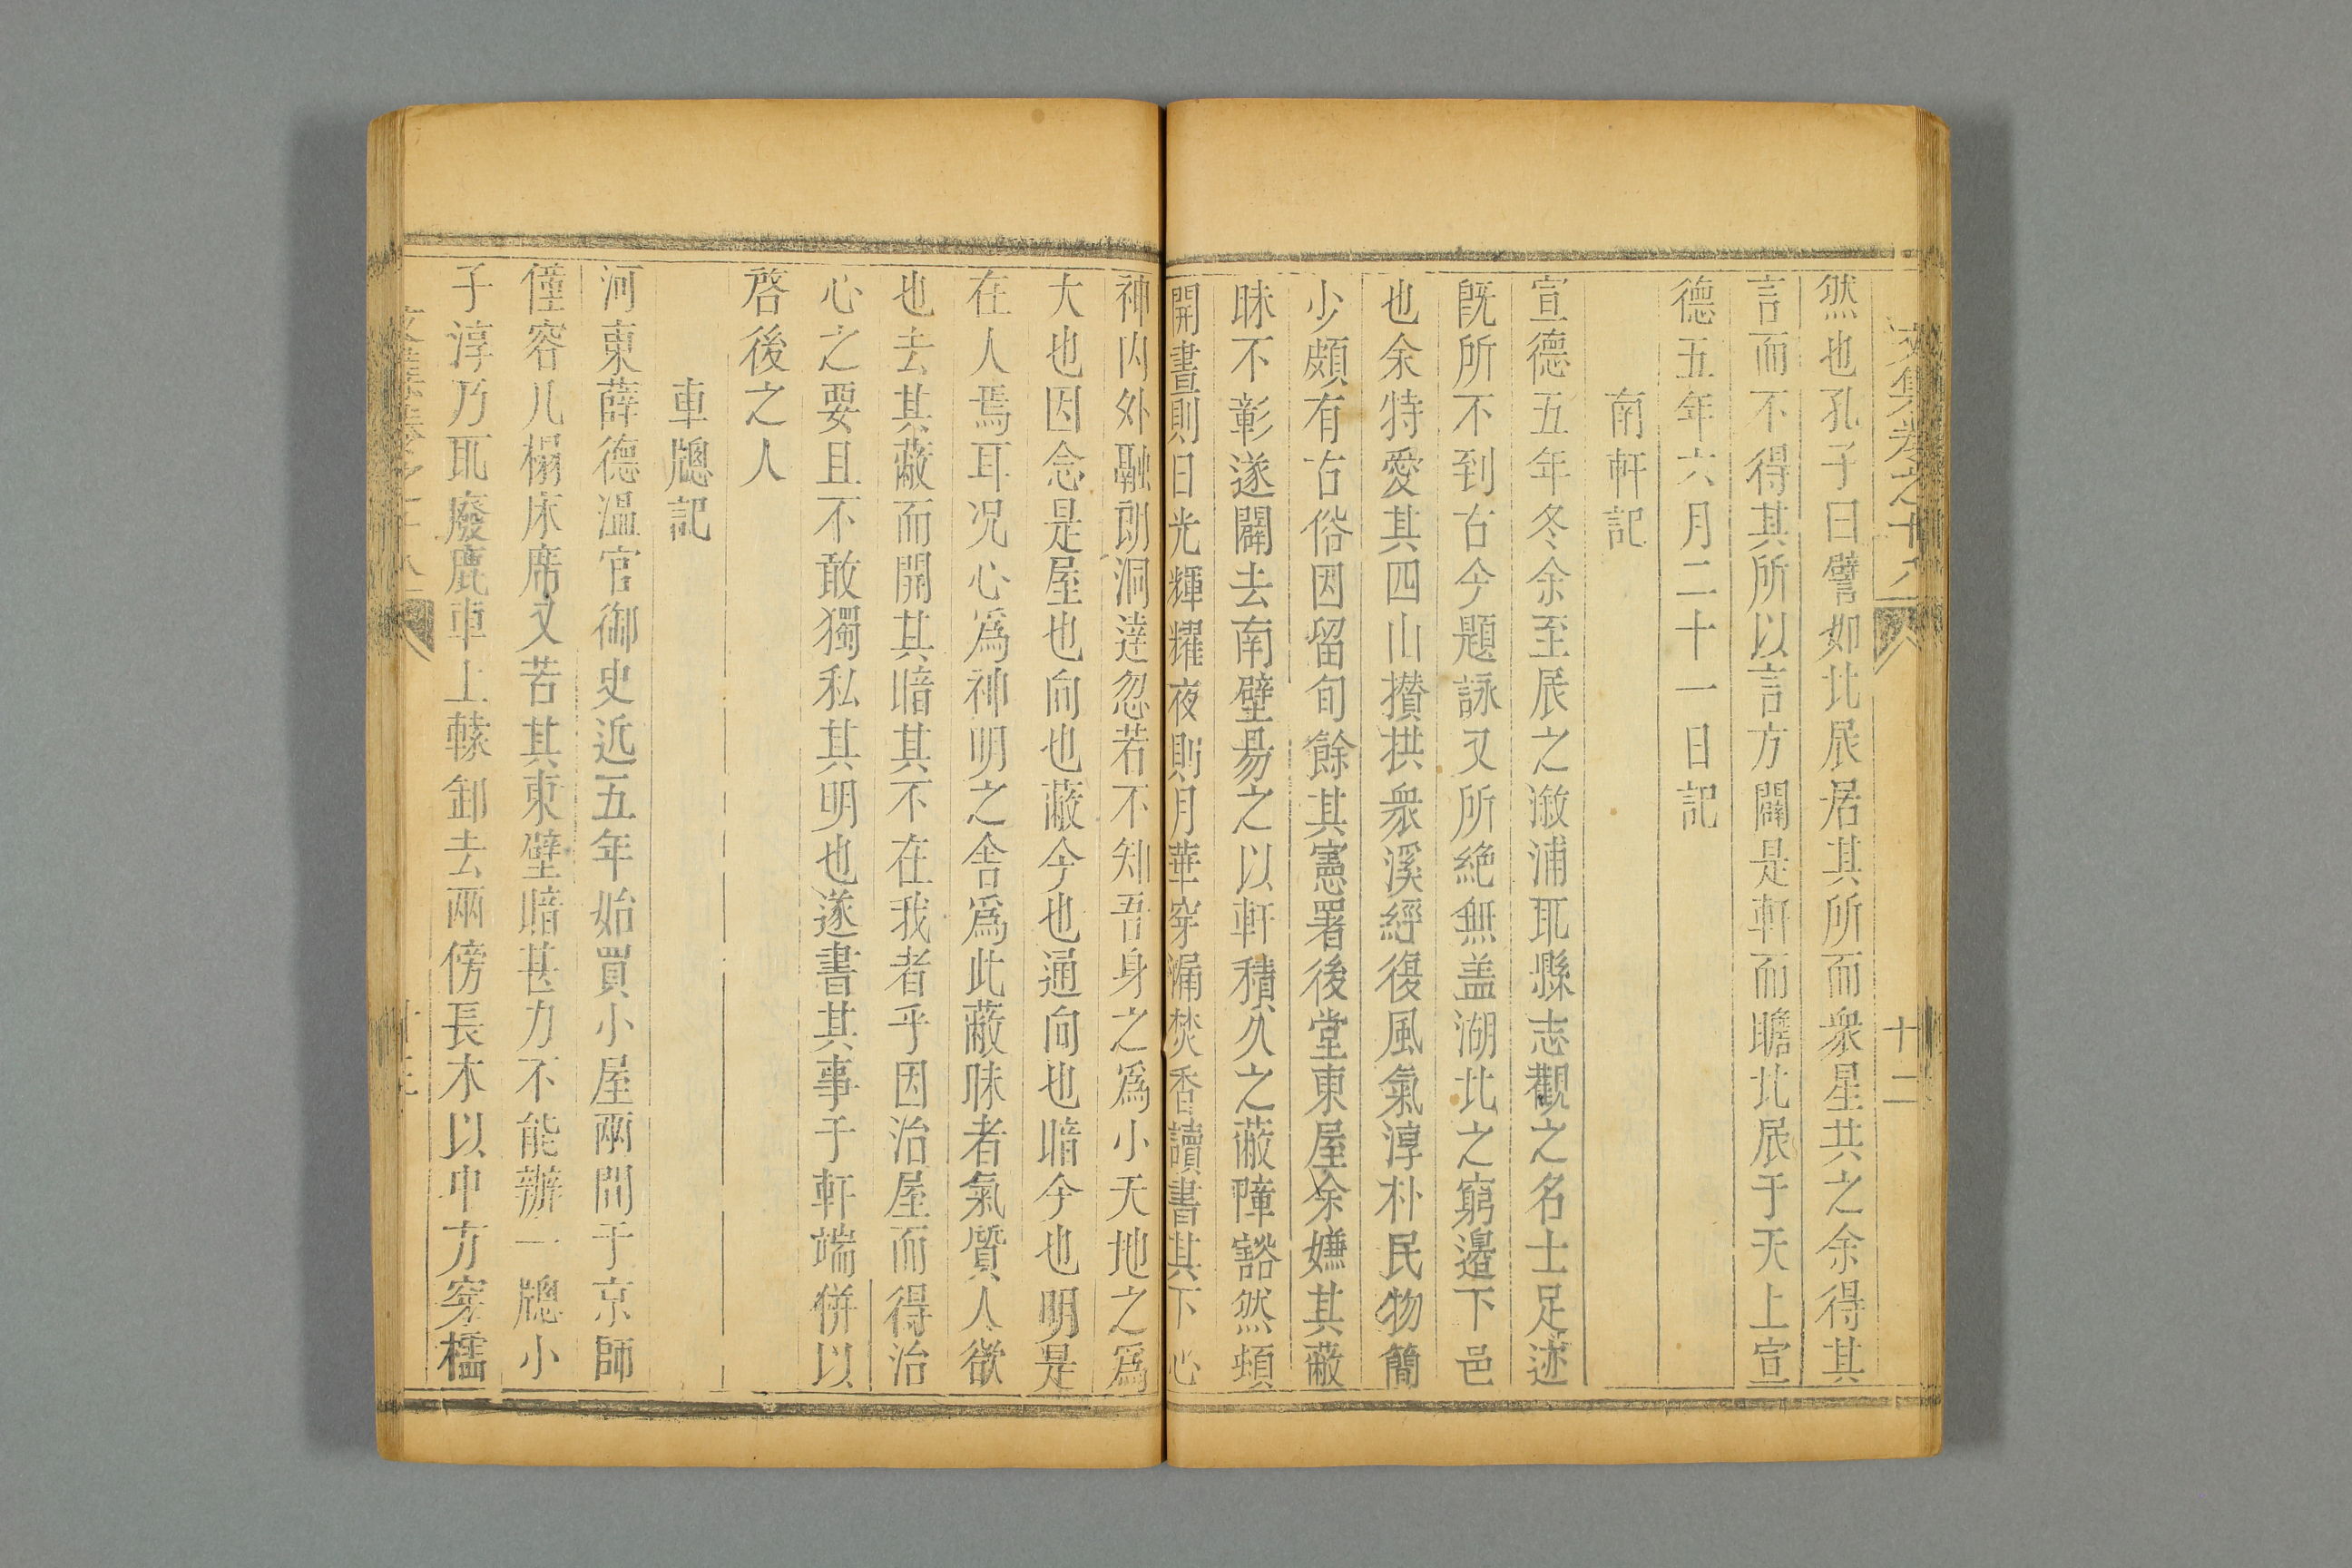 文集卷之十八
十二
然也孔子曰譬如北辰居其所而衆星共之余得其
言而不得其所以言方闢是軒而瞻北辰于天上宣
德五年六月二十一日記
南軒記
宣德五年冬余至辰之漵浦取縣志觀之名士足迹
旣所不到古今題詠又所絶無盖湖北之窮邉下邑
也余特愛其四山攅拱衆溪經復風氣淳朴民物簡
少頗有古俗因留旬餘其憲署後堂東屋余嫌其蔽
昧不彰遂闢去南壁易之以軒積久之蔽障豁然頓
開晝則日光輝耀夜則月華穿漏焚香讀書其下心
神内外融朗洞達忽若不知吾身之爲小天地之爲
大也因念是屋也向也蔽今也通向也暗今也明是
在人焉耳况心爲神明之舍爲此蔽昧者氣質人欲
也去其蔽而開其暗其不在我者乎因治屋而得治
心之要且不敢獨私其明也遂書其事于軒端併以
啓後之人
車牕記
河東薛德溫官御史近五年始買小屋兩間于京師
僅容几榻床席又若其東壁暗甚力不能辦一牕小
子淳乃取廢鹿車上轅卸去兩傍長木以中方穿櫺
文集卷之十八